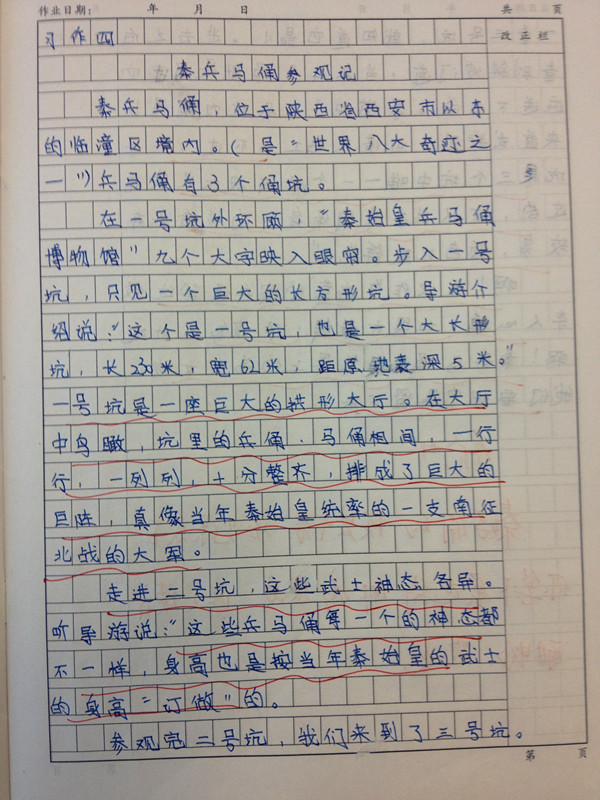 作业日期： 年 月 日 共 页
习作四 改正栏
秦兵马俑参观记
秦兵马俑，位于陕西省西安市以东
的临潼区境内。（是“世界八大奇迹之
一”）兵马俑有3个俑坑。
在一号坑外环顾，“秦始皇兵马俑
博物馆”九个大字映入眼帘。步入一号
坑，只见一个巨大的长方形坑。导游介
绍说：“这个是一号坑，也是一个大长形
坑，长230米，宽62米，距原地表深5米。”
一号坑是一座巨大的拱形大厅。在大厅
中鸟瞰，坑里的兵俑、马俑相间，一行
行，一列列，十分整齐，排成了巨大的
巨阵，真像当年秦始皇统率的一支南征
北战的大军。
走进二号坑，这些武士神态各异。
听导游说：“这些兵马俑每一个的神态都
不一样，身高也是按当年秦始皇的武士
的身高“订做”的。
参观完二号坑，我们来到了三号坑。
第 页